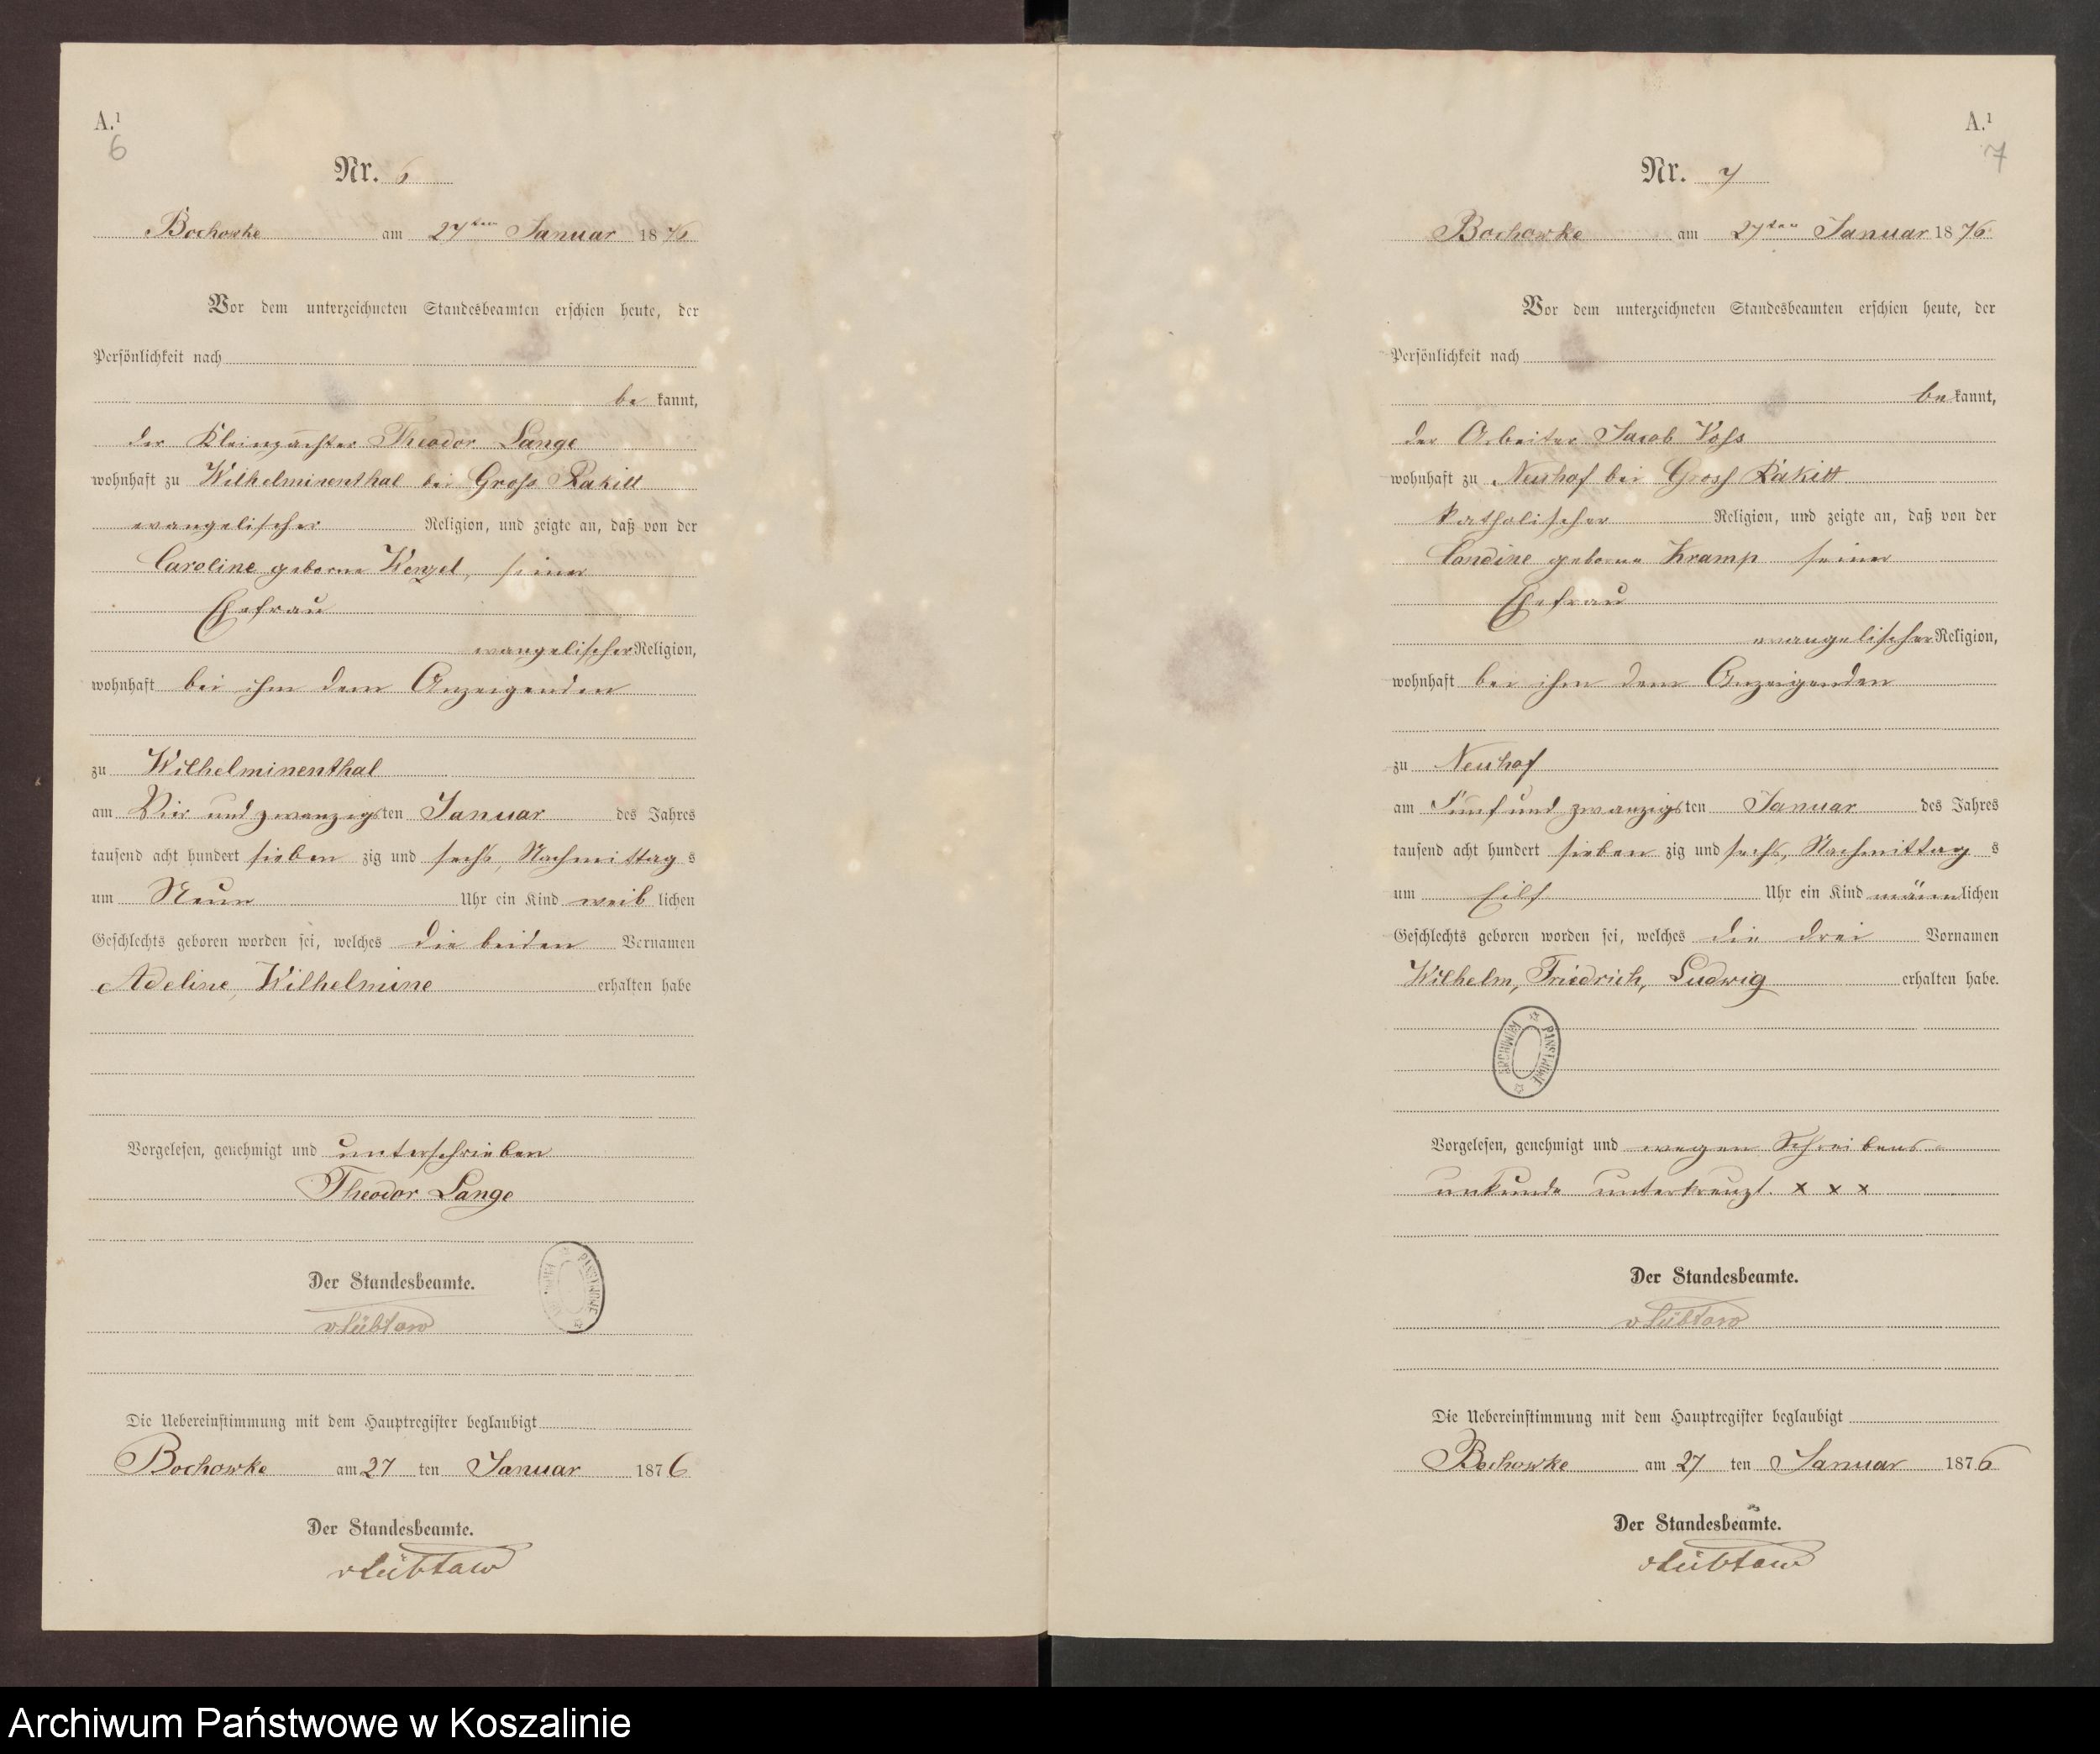 A.¹
6
Nr. 6
Bochowke am 27ten Januar 1876
Vor dem unterzeichneten Standesbeamten erschien heute, der
Persönlichkeit nach
be kannt,
der Kleinpächter Theodor Lange
wohnhaft zu Wilhelminenthal bei Gross Rakitt
evangelischer Religion, und zeigte an, daß von der
Caroline geborne Wenzel, seiner
Ehefrau
evangelischer Religion,
wohnhaft bei ihm dem Anzeigenden
zu Wilhelminenthal
am Vier und zwanzigsten Januar des Jahres
tausend acht hundert sieben zig und sechs, Nachmittag s
um Neun Uhr ein Kind weib lichen
Geschlechts geboren worden sei, welches die beiden Vornamen
Adeline, Wilhelmine erhalten habe
Vorgelesen, genehmigt und unterschrieben
Theodor Lange
Der Standesbeamte.
vLübtow
PAŃSTWOWE
Die Uebereinstimmung mit dem Hauptregister beglaubigt
Bochowke am 27 ten Januar 1876
Der Standesbeamte.
vLübtow
A.¹
7
Nr. 7
Bochowke am 27ten Januar 1876
Vor dem unterzeichneten Standesbeamten erschien heute, der
Persönlichkeit nach
be kannt,
der Arbeiter Jacob Voss
wohnhaft zu Neuhof bei Gross Rakitt
katholischer Religion, und zeigte an, daß von der
geborne Kramp seiner
Ehefrau
evangelischer Religion,
wohnhaft bei ihm dem Anzeigenden
zu Neuhof
am Fünf und zwanzigsten Januar des Jahres
tausend acht hundert sieben zig und sechs, Nachmittag s
um Eilf Uhr ein Kind männlichen
Geschlechts geboren worden sei, welches die drei Vornamen
Wilhelm, Friedrich, Ludwig erhalten habe.
ARCHIWUM PAŃSTWOWE
Vorgelesen, genehmigt und wegen Schreibens
unkunde unterkreuzt. x x x
Der Standesbeamte.
vLübtow
Die Uebereinstimmung mit dem Hauptregister beglaubigt
Bochowke am 27 ten Januar 1876
Der Standesbeamte.
vLübtow
Archiwum Państwowe w Koszalinie